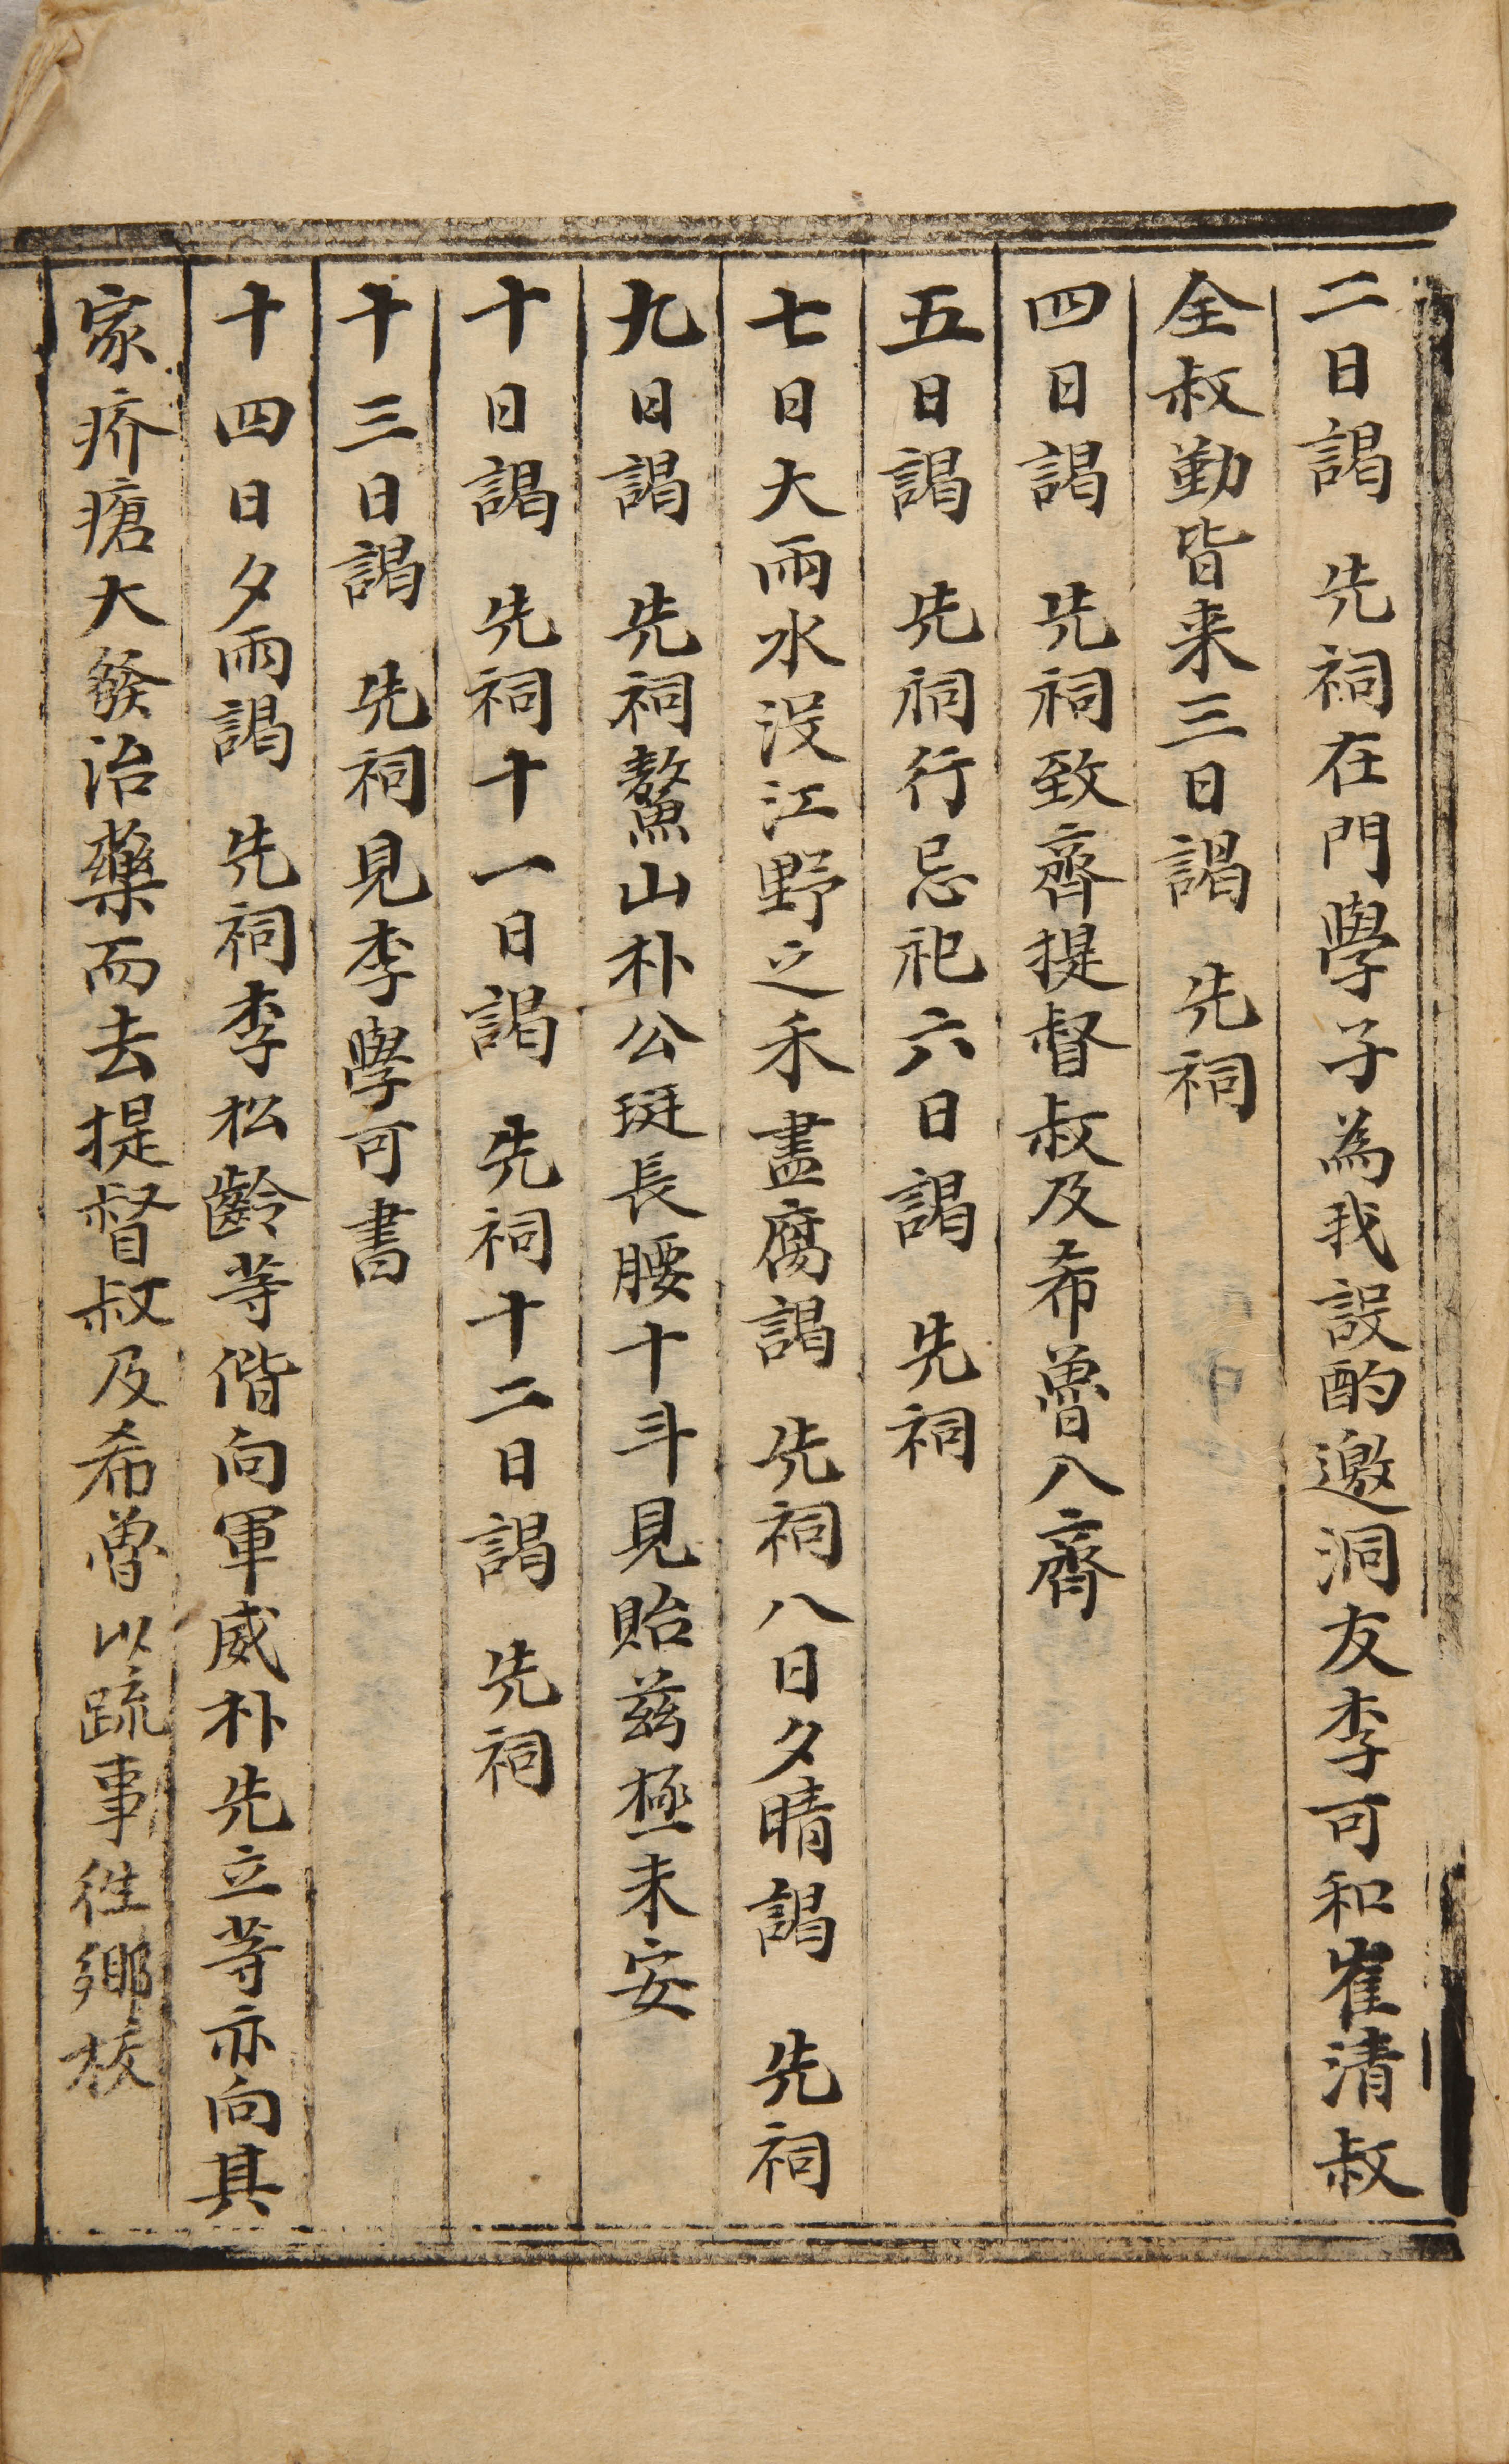 二日謁　先祠在門學子為我設酌邀洞友李可和崔清叔
全叔勤皆来三日謁　先祠
四日謁　先祠致齊提督叔及希魯入齊
五日謁　先祠行忌祀六日謁　先祠
七日大雨水没江野之禾盡腐謁　先祠八日夕晴謁　先祠
九日謁　先祠鰲山朴公珽長腰十斗見貽茲極未安
十日謁　先祠十一日謁　先祠十二日謁　先祠
十三日謁　先祠見李學可書
十四日夕雨謁　先祠李松齡等偕向軍威朴先立等亦向其
家疥瘡大發治藥而去提督叔及希魯以疏事徃鄉校